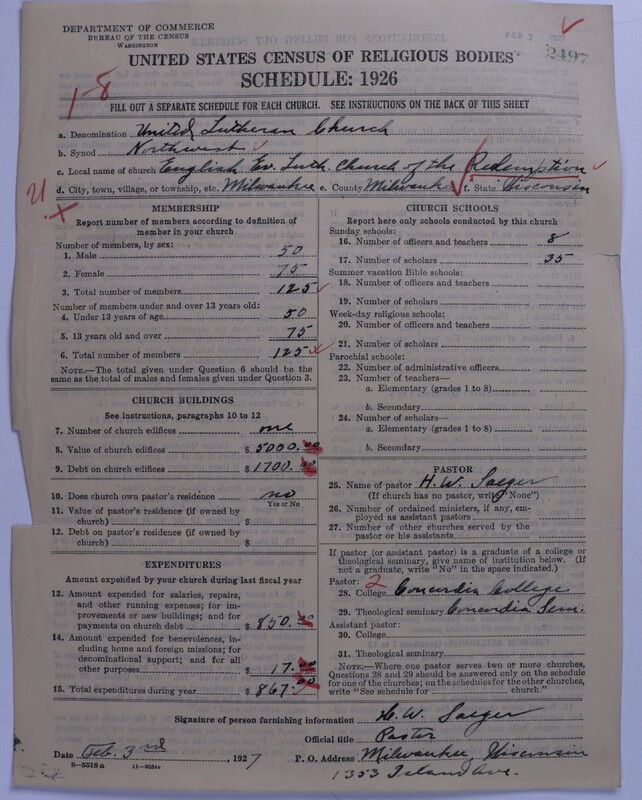 DEPARTMENT OF COMMERCE
BUREAU OF THE CENSUS
WASHINGTON
2497
UNITED STATES CENSUS OF RELIGIOUS BODIES
SCHEDULE: 1926
1-8
FILL OUT A SEPARATE SCHEDULE FOR EACH CHURCH. SEE INSTRUCTIONS ON THE BACK OF THIS SHEET
a. Denomination United Lutheran Church
b. Synod Northwest
c. Local name of church English Ev. Luth. Church of the Redemption
d. City, town, village, or township, etc. Milwaukee e. County Milwaukee f. State Wisconsin
MEMBERSHIP
Report number of members according to definition of member in your church
Number of members, by sex:
1. Male 50
2. Female 75
3. Total number of members 125
Number of members under and over 13 years old:
4. Under 13 years of age 50
5. 13 years old and over 75
6. Total number of members 125
NOTE.—The total given under Question 6 should be
same as the total of males and females given under Question 3.
CHURCH BUILDINGS
See instructions, paragraphs 10 to 12
7. Number of church edifices one
8. Value of church edifices $ 5000.00
9. Debt on church edifices $ 1700.00
10. Does church own pastor's residence no
Yes or No
11. Value of pastor's residence (if owned by
church) $
12. Debt on pastor's residence (if owned by
church) $
EXPENDITURES
Amount expended by your church during last fiscal year
13. Amount expended for salaries, repairs,
and other running expenses; for im-
provements or new buildings; and for
payments on church debt $ 850.00
14. Amount expended for benevolences, in-
cluding home and foreign missions; for
denominational support; and for all
other purposes $ 17.00
15. Total expenditures during year $ 867.00
CHURCH SCHOOLS
Report here only schools conducted by this church
Sunday schools:
16. Number of officers and teachers 8
17. Number of scholars 35
Summer vacation Bible schools:
18. Number of officers and teachers
19. Number of scholars
Week-day religious schools:
20. Number of officers and teachers
21. Number of scholars
Parochial schools:
22. Number of administrative officers
23. Number of teachers—
a. Elementary (grades 1 to 8)
b. Secondary
24. Number of scholars—
a. Elementary (grades 1 to 8)
b. Secondary
PASTOR
25. Name of pastor H. W. Saeger
(If church has no pastor, write "None")
26. Number of ordained ministers, if any, em-
ployed as assistant pastors
27. Number of other churches served by the
pastor or his assistants
If pastor (or assistant pastor) is a graduate of a college or
theological seminary, give name of institution below. (If
not a graduate, write "No" in the space indicated.)
Pastor: 2
28. College Concordia College
29. Theological seminary Concordia Sem.
Assistant pastor:
30. College
31. Theological seminary
NOTE.—Where one pastor serves two or more churches,
Questions 28 and 29 should be answered only on the schedule
for one of the churches; on the schedules for the other churches,
write "See schedule for church."
Signature of person furnishing information H. W. Saeger
Official title Pastor
Date Feb. 3rd, 1927 P. O. Address Milwaukee, Wisconsin
8-5518a 1353 Island Ave.